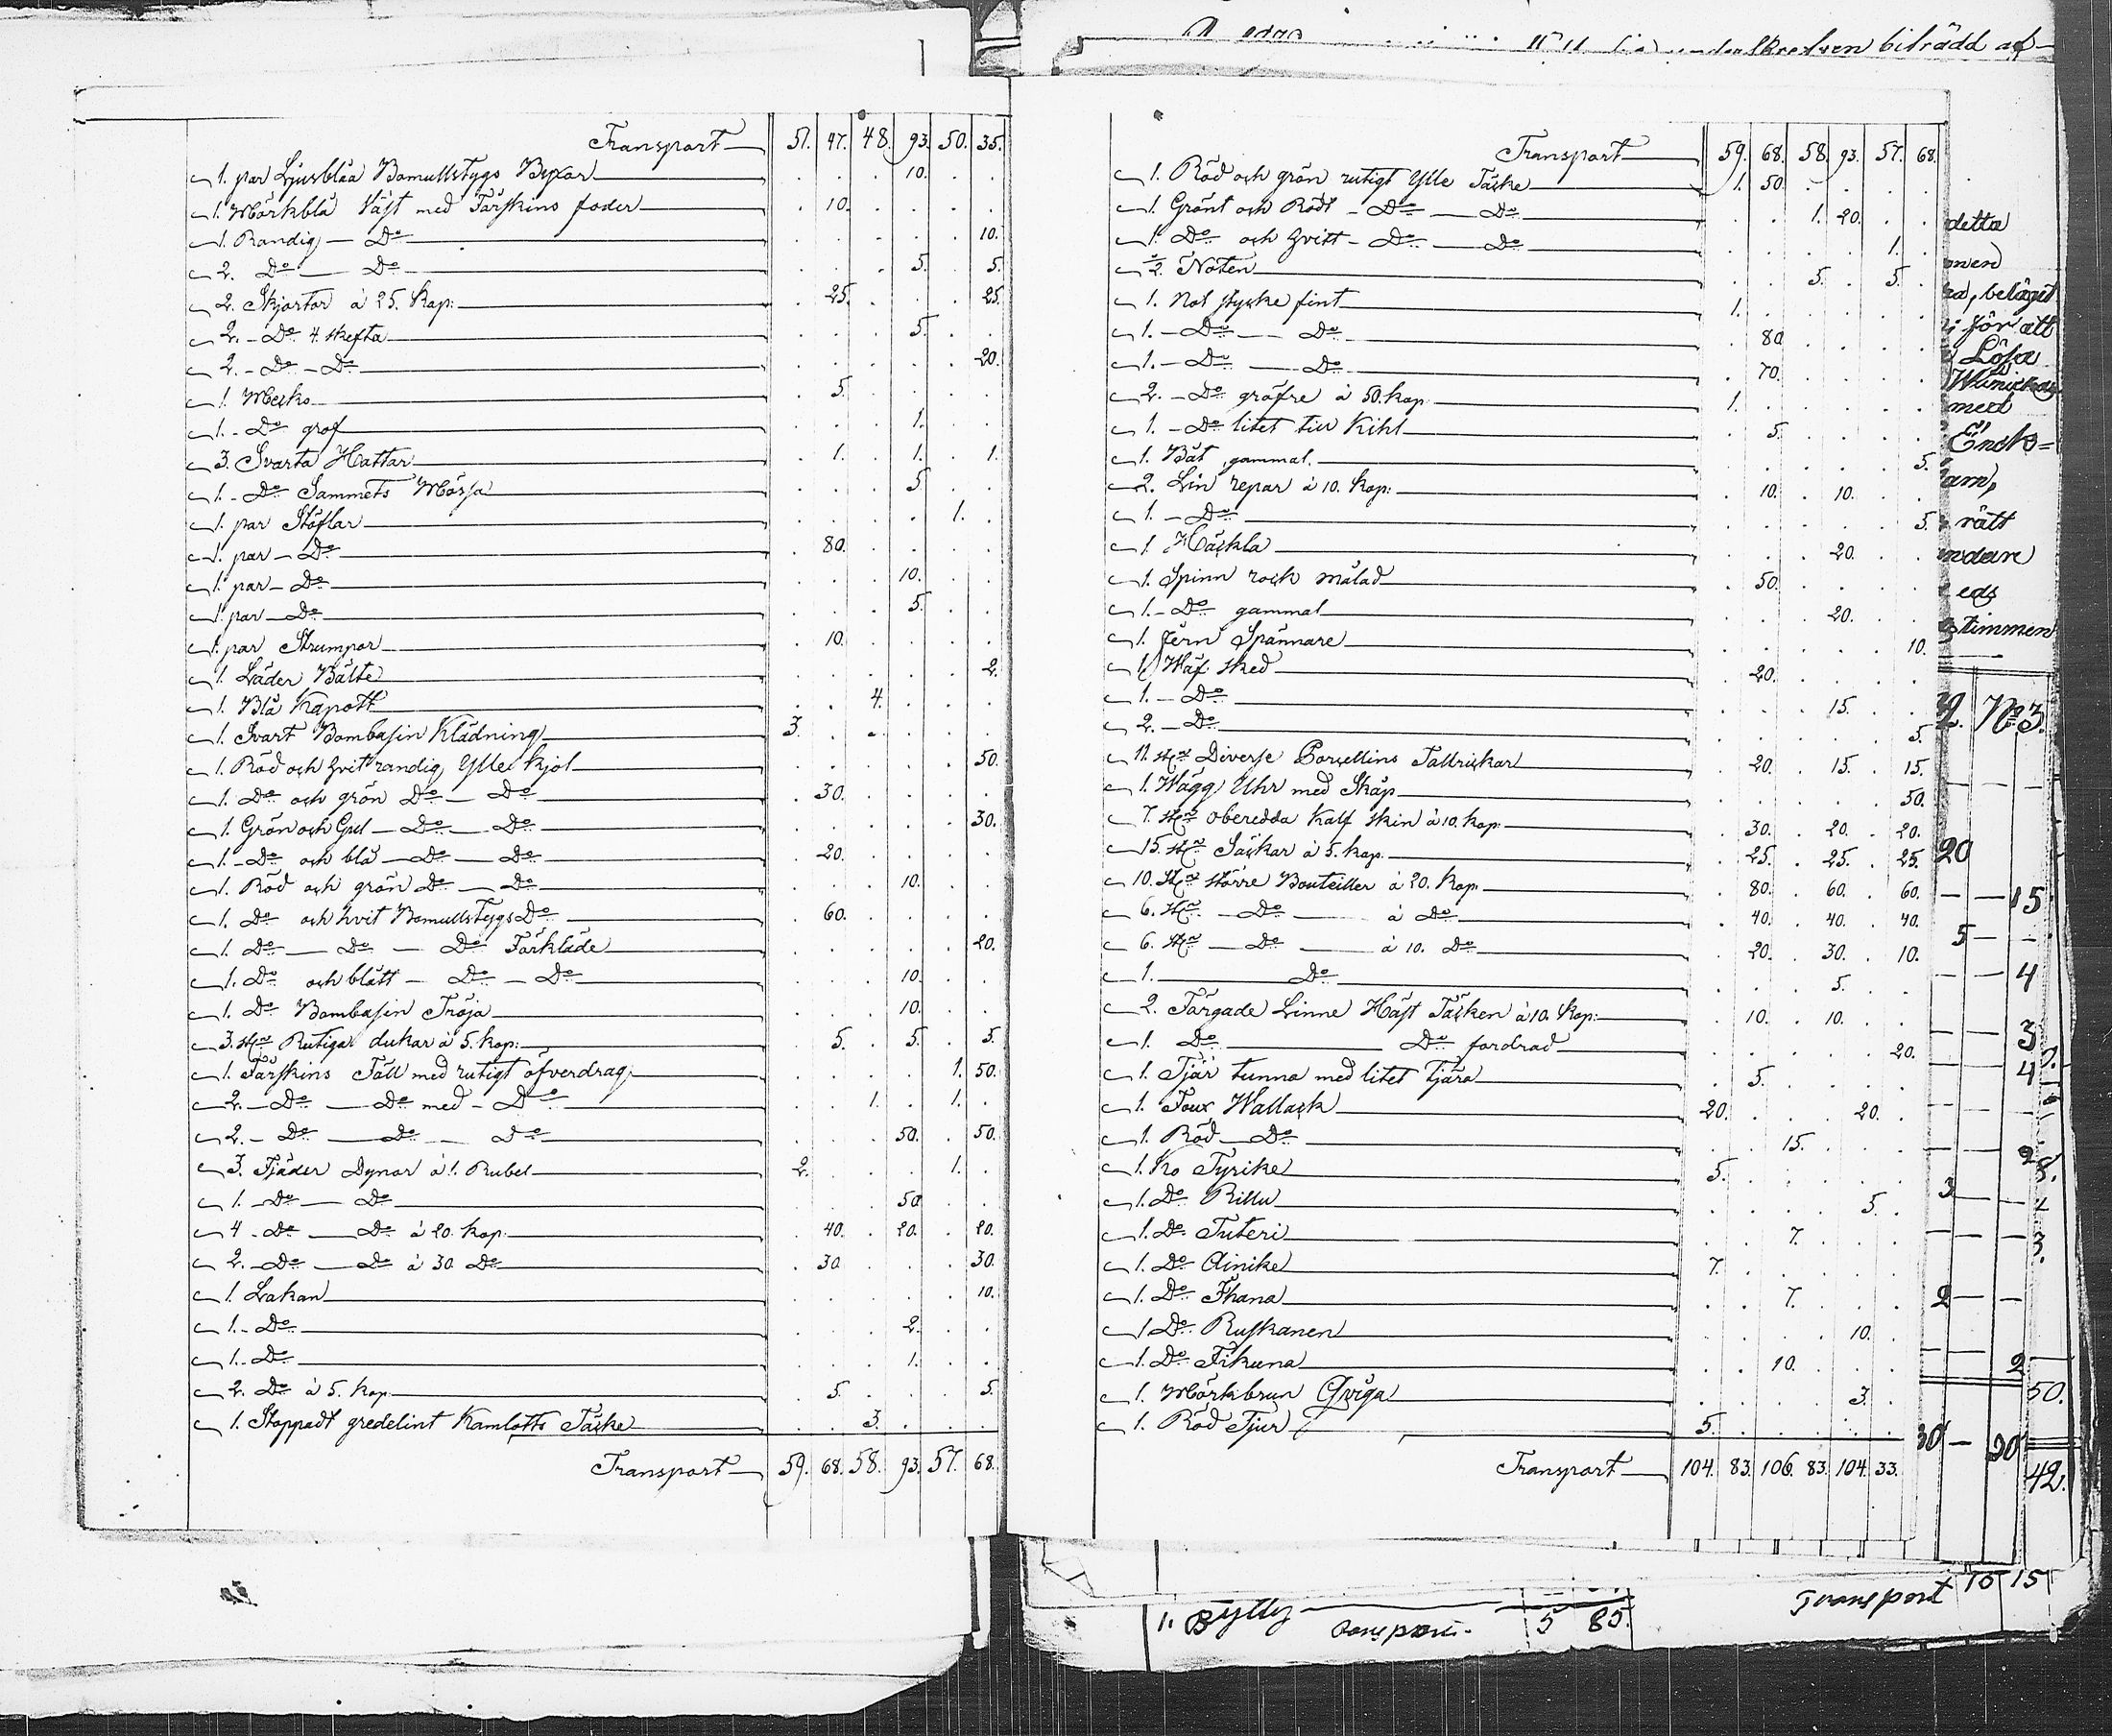 Transport 51. 47. 48. 93. 50. 35.
1. par Ljusblåa Bomullstygs Byxor . . . 10. . .
1. Mörkblå Väst med Fårskins foder . 10. . . . .
1. Randig Do . . . . . 10.
2. Do Do . . . 5. . 5.
2. Skjortor à 25. kop: . 25. . . . 25.
2. Do 4. skefta . . . 5. . .
2. Do Do . . . . . 20.
1. Mecko . 5. . . . .
1. Do grof . . . 1. . .
3. Svarta Hattar . 1. . 1. . 1.
1. Do Sammets Mössa . . . 5. . .
1. par Stöflar . . . . 1. .
1. par Do . 80. . . . .
1. par Do . . . 10. . .
1. par Do . . . 5. . .
1. par Strumpor . 10. . . . .
1. Läder Bälte . . . . . 2.
1. Blå Kapott . . 4. . . .
1. Svart Bombasin Klädning 3. . . . . .
1. Röd och hvit randig Ylle kjol . . . . . 50.
1. Do och grön Do Do . 30. . . . .
1. Grön och Gul Do Do . . . . . 30.
1. Do och blå Do Do . 20. . . . .
1. Röd och grön Do Do . . . 10. . .
1. Do och hvit Bomullstygs Do . 60. . . . .
1. Do Do Do Förkläde . . . . . 20.
1. Do och blått Do Do . . . 10. . .
1. Do Bombasin Tröja . . . 10. . .
3. Stn Rutiga dukar à 5. kop: . 5. . 5. . 5.
1. Fårskins Fäll med rutigt öfverdrag . . . . 1. 50.
2. Do Do med Do . . 1. . 1. .
2. Do Do Do . . . 50. . 50.
3. Fjäder Dynor à 1. Rubel 2. . . . 1. .
1. Do Do . . . 50 . .
4 Do Do à 20. kop. . 40. . 20. . 20.
2. Do Do à 30. Do . 30 . . . 30.
1. Lakan . . . . . 10.
1. Do . . . 2. . .
1. Do . . . 1. . .
2. Do à 5. kop . 5. . . . 5.
1. Stoppadt gredelint Kamlotts Täcke . . 3. . . .
Transport 59. 68. 58. 93. 57. 68.
biträdd af
Transport 59. 68. 58. 93. 57. 68.
1. Röd och grön rutigt Ylle Täcke 1. 50. . . . .
1. Grönt och Rödt Do Do . . 1. 20. . .
1. Do och hvitt Do Do . . . . 1. .
2. Nöten . . 5. . 5. .
1. Not stycke fint 1. . . . . .
1. Do Do . 80 . . . .
1. Do Do . 70. . . . .
2. Do gröfre à 50. kop 1. . . . . .
1. Do litet till Kihl . 5. . . . .
1. Båt, gammal. . . . . . 5.
2. Lin repor à 10. kop: . 10. . 10. . .
1. Do . . . . . 5.
1. Häckla . . . 20. . .
1. Spinn rock målad . 50. . . . .
1. Do gammal . . . 20. . .
1. Jern Spännare . . . . . 10.
1. Wäf sked . 20. . . . .
1. Do . . . 15. . .
2. Do . . . . . 5.
11. Stn Diverse Porcellins Tallrickar . 20. . 15. . 15.
1. Wägg Uhr med Skåp . . . . . 50.
7. Stn oberedda kalf skin à 10. kop . 30. . 20. . 20.
15. Stn Säckar à 5. kop. . 25. . 25. . 25.
10. Stn större Bouteiller à 20. kop . 80. . 60. . 60.
6. Stn Do à Do . 40. . 40. . 40.
6. Stn Do à 10. Do . 20. . 30. . 10.
1. Do . . . 5. . .
2. Färgade Linne Häst Täcken à 10. kop: . 10. . 10. . .
1. Do Do fordrad . . . . . 20.
1. Tjär tunna med litet tjära . 5. . . . .
1. Foux Wallack 20. . . . 20. .
1. Röd Do . . 15. . . .
1. Ko Tyrike 5. . . . . .
1. Do Rillu . . . . 5. .
1. Do Tuteri . . 7. . . .
1. Do Ainike 7. . . . . .
1. Do Ihana . . 7. . . .
1. Do Ruskanen . . . . 10. .
1. Do Tikuna . . 10. . . .
1. Mörkbrun Qviga . . . . 3. .
1. Röd Tjur 5. . . . . .
Transport 104. 83. 106. 83. 104. 33.
detta
beläget
för att
Lösa
med
rätt
eds
timmen
No 3.
20
15
5
4
3
4
2
3
3.
2
2
50.
20
42.
Transport 10 15
1. Bytty
Transport 5 85.